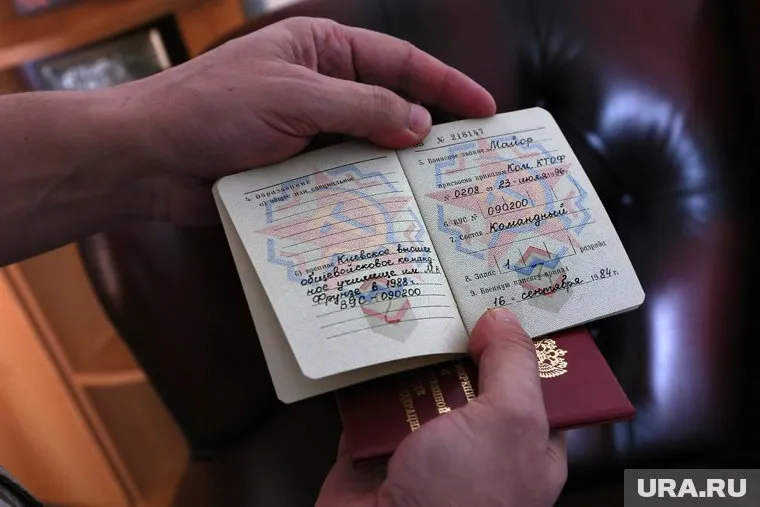 4. Образование:
а) общее или специальное
б) военное Киевское высшее
общевойсковое команд-
ное училище им. М.В
Фрунзе в 1988г.
ВУС-090200
№ 218147
5. Воинское звание Майор
присвоено приказом Ком КТОФ
№ 0208 от 23 июля 1996
6. ВУС № 090200
7. Состав Командный
8. Запас 1 разряд
9. Военную присягу принял
16 сентября 1984г.
URA.RU